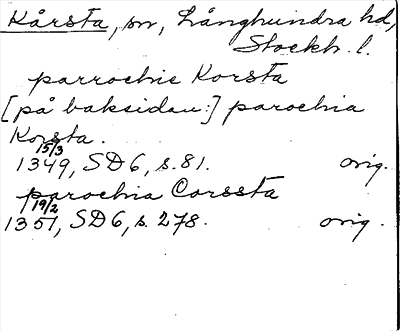 Kårsta, sn, Långhundra hd,
Stockh. l.
parrochie Korsta
[på baksidan:] parochia
Korsta.
15/3
1349, SD 6, s. 81. orig.
parochia Corssta
19/2
1351, SD 6, s. 278. orig.